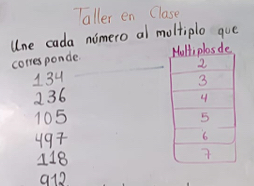 Taller en Clase
Une cada número al multiplo que
corresponde.
Multiplos de
134
236
105
497
118
912
2
3
4
5
6
7